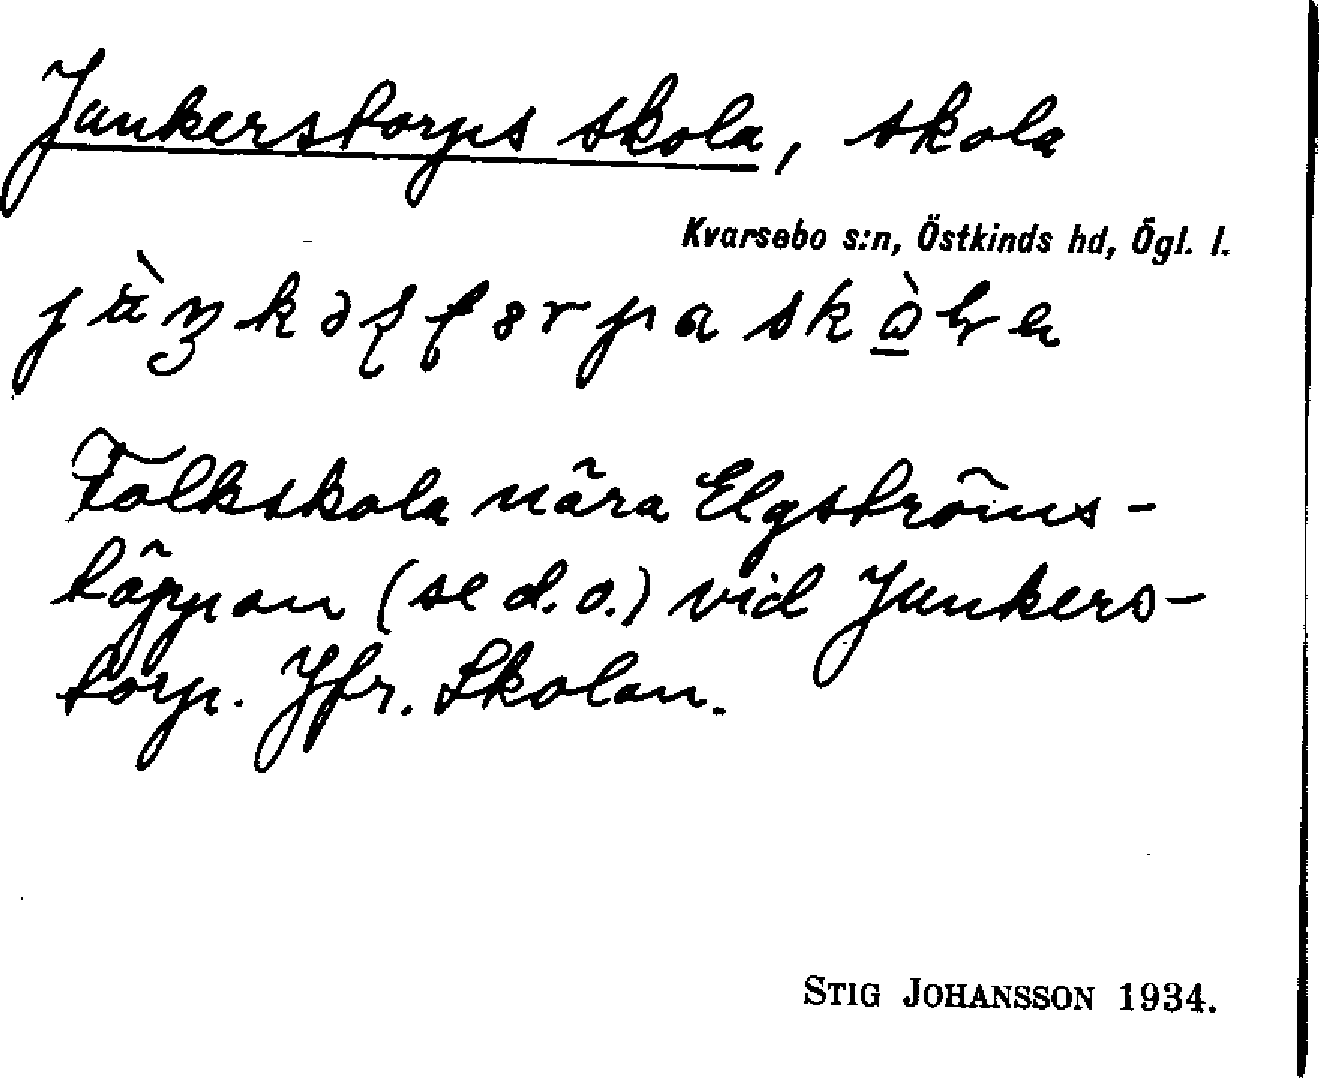 Junkerstorps skola, skola
Kvarsebo s:n, Östkinds hd, Ögl. l.
Folkskola nära Elgströms-
täppan (se d.o.) vid Junkers-
torp. Jfr. Skolan.
STIG JOHANSSON 1934.